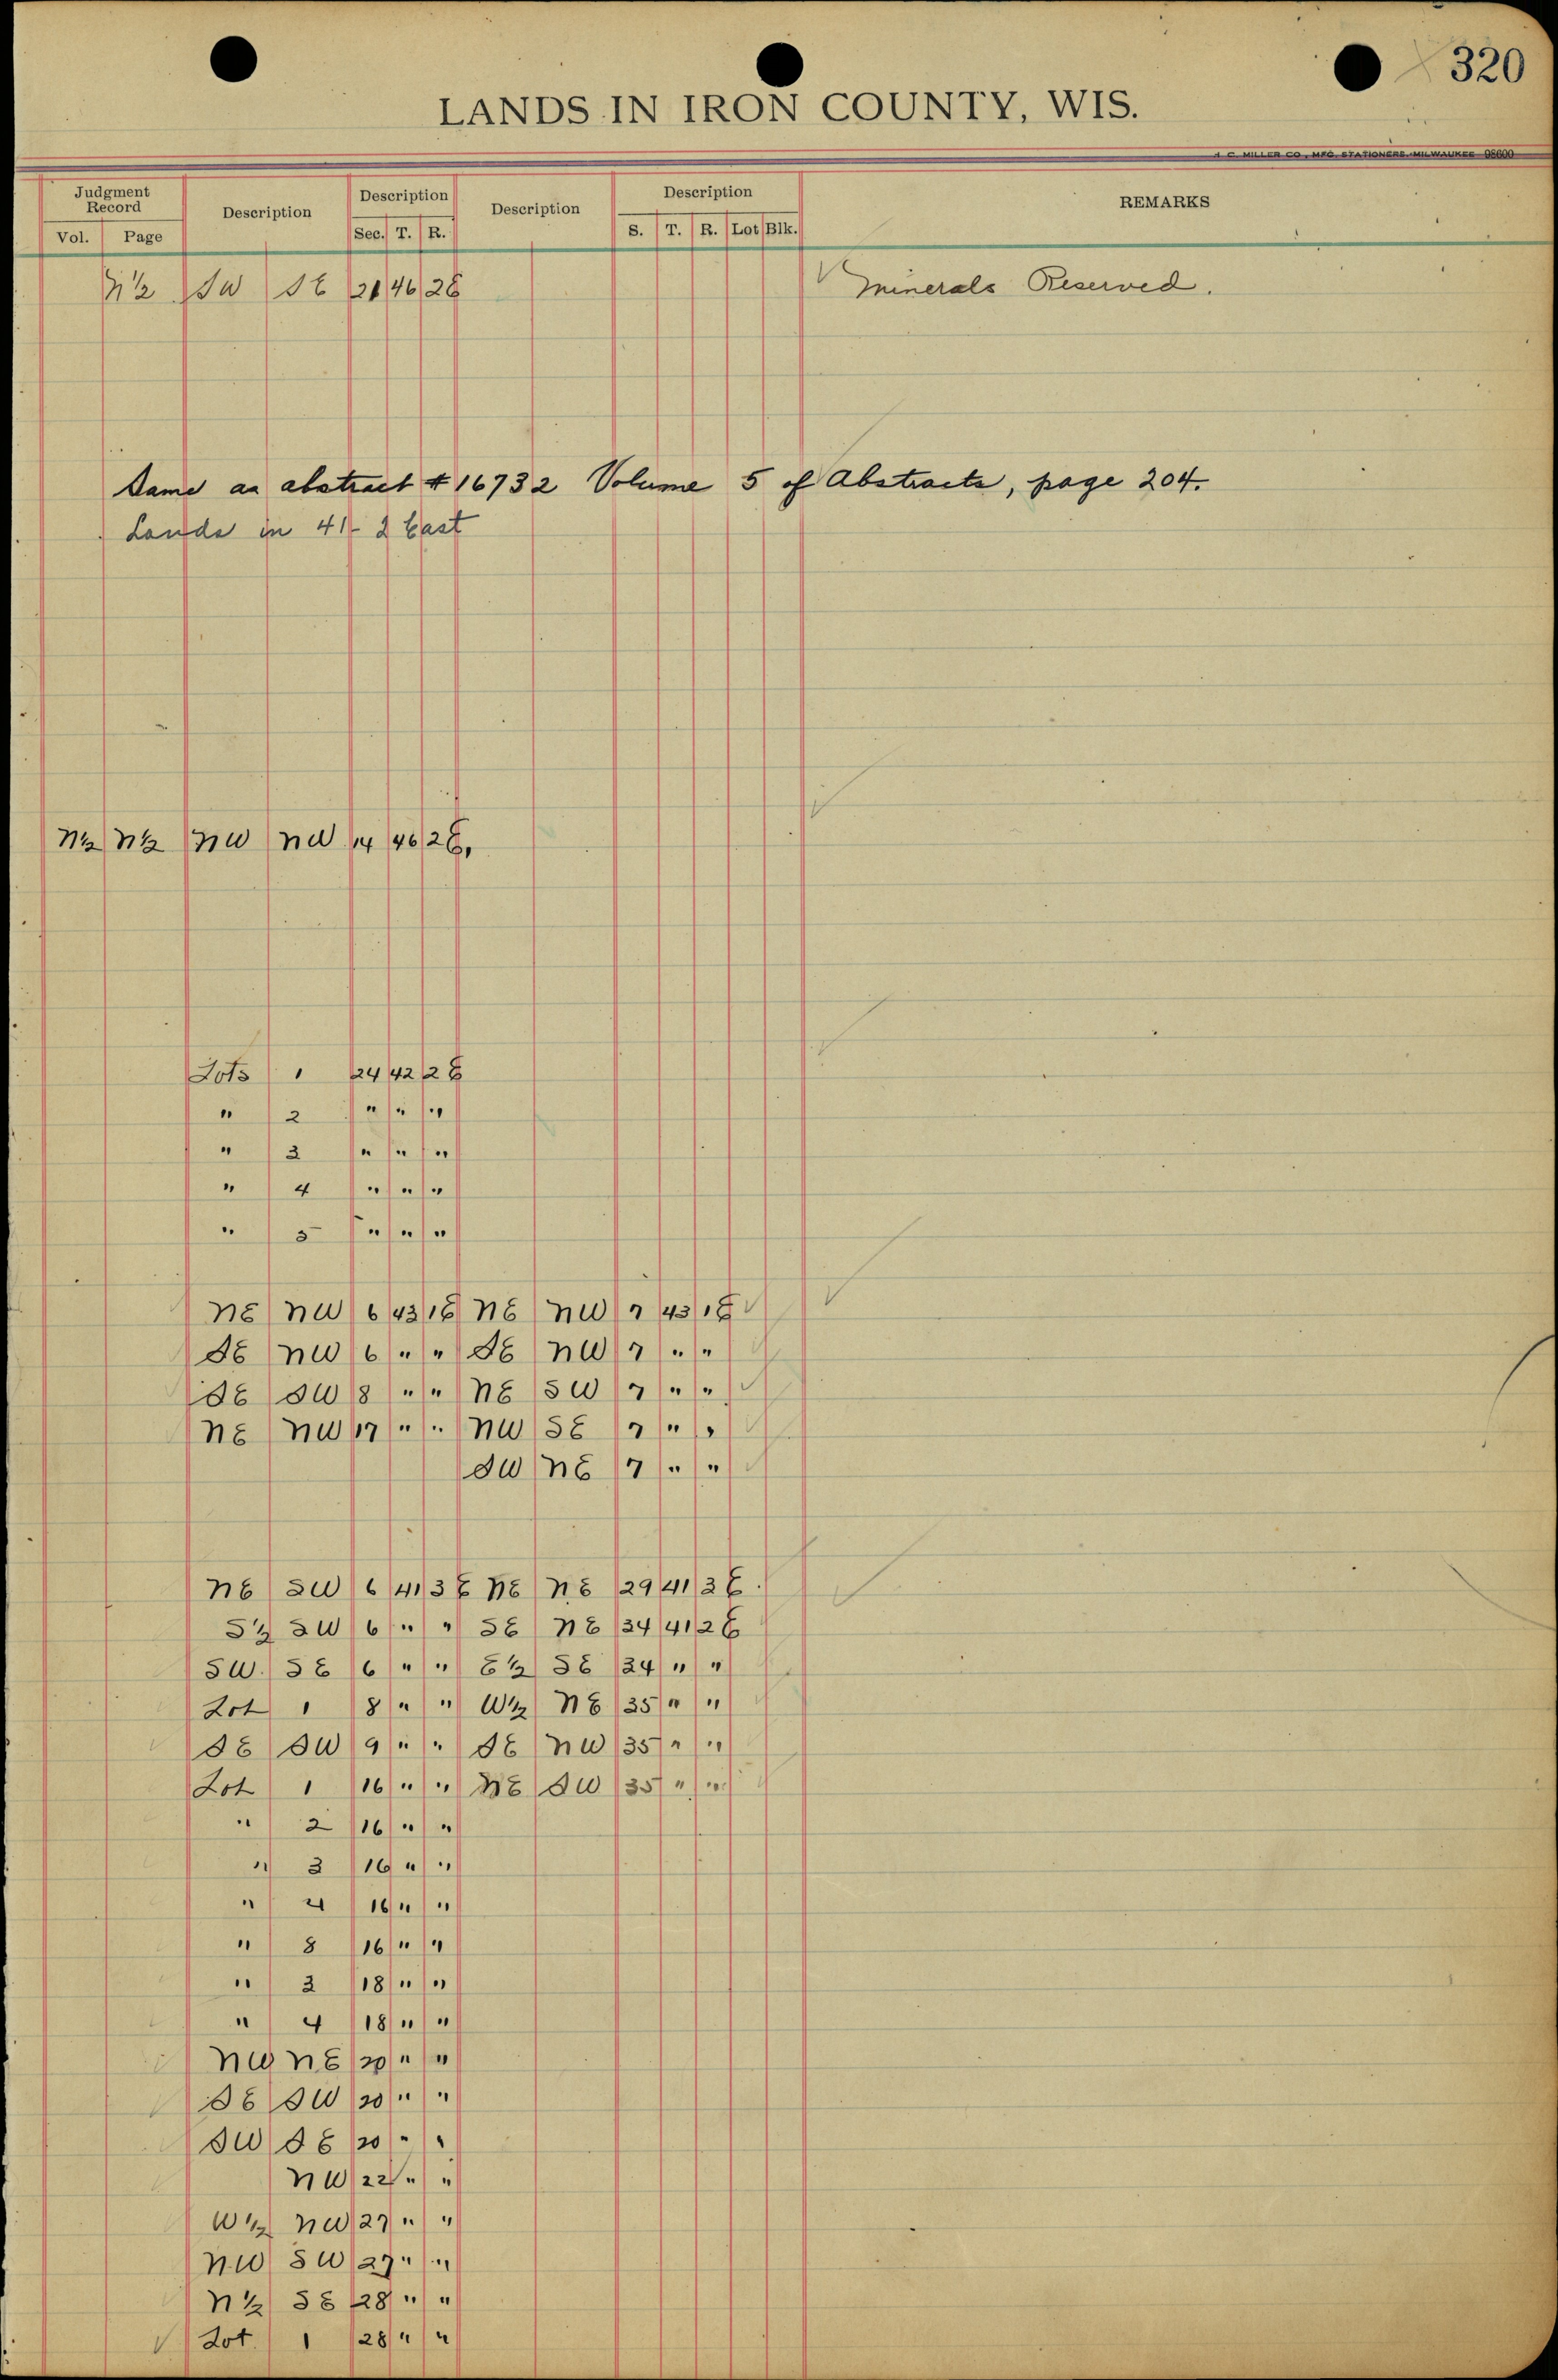 320
LANDS IN IRON COUNTY, WIS.
H. C. MILLER CO., MFG. STATIONERS. MILWAUKEE 98600
Judgment Record Description Description Description Description REMARKS
Vol. Page Sec. T. R. S. T. R. Lot Blk.
N½ SW SE 21 46 2E Minerals Reserved.
Same as abstract #16732 Volume 5 of Abstracts, page 204.
Lands in 41-2 East
N½ N½ NW NW 14 46 2E.
Lots 1 24 42 2E
" 2 " " "
" 3 " " "
" 4 " " "
" 5 " " "
NE NW 6 43 1E NE NW 7 43 1E
SE NW 6 " " SE NW 7 " "
SE SW 8 " " NE SW 7 " "
NE NW 17 " " NW SE 7 " "
SW NE 7 " "
NE SW 6 41 3E NE NE 29 41 3E
S½ SW 6 " " SE NE 34 41 2E
SW SE 6 " " E½ SE 34 " "
Lot 1 8 " " W½ NE 35 " "
SE SW 9 " " SE NW 35 " "
Lot 1 16 " " NE SW 35 " "
" 2 16 " "
" 3 16 " "
" 4 16 " "
" 8 16 " "
" 3 18 " "
" 4 18 " "
NW NE 20 " "
SE SW 20 " "
SW SE 20 " "
NW 22 " "
W½ NW 27 " "
NW SW 27 " "
N½ SE 28 " "
Lot 1 28 " "